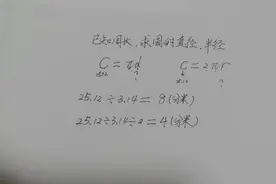 已知周长，求圆的直径、半径
C=πd C=2πr
已知 ? 已知 ?
25.12÷3.14=8(分米)
25.12÷3.14÷2=4(分米)